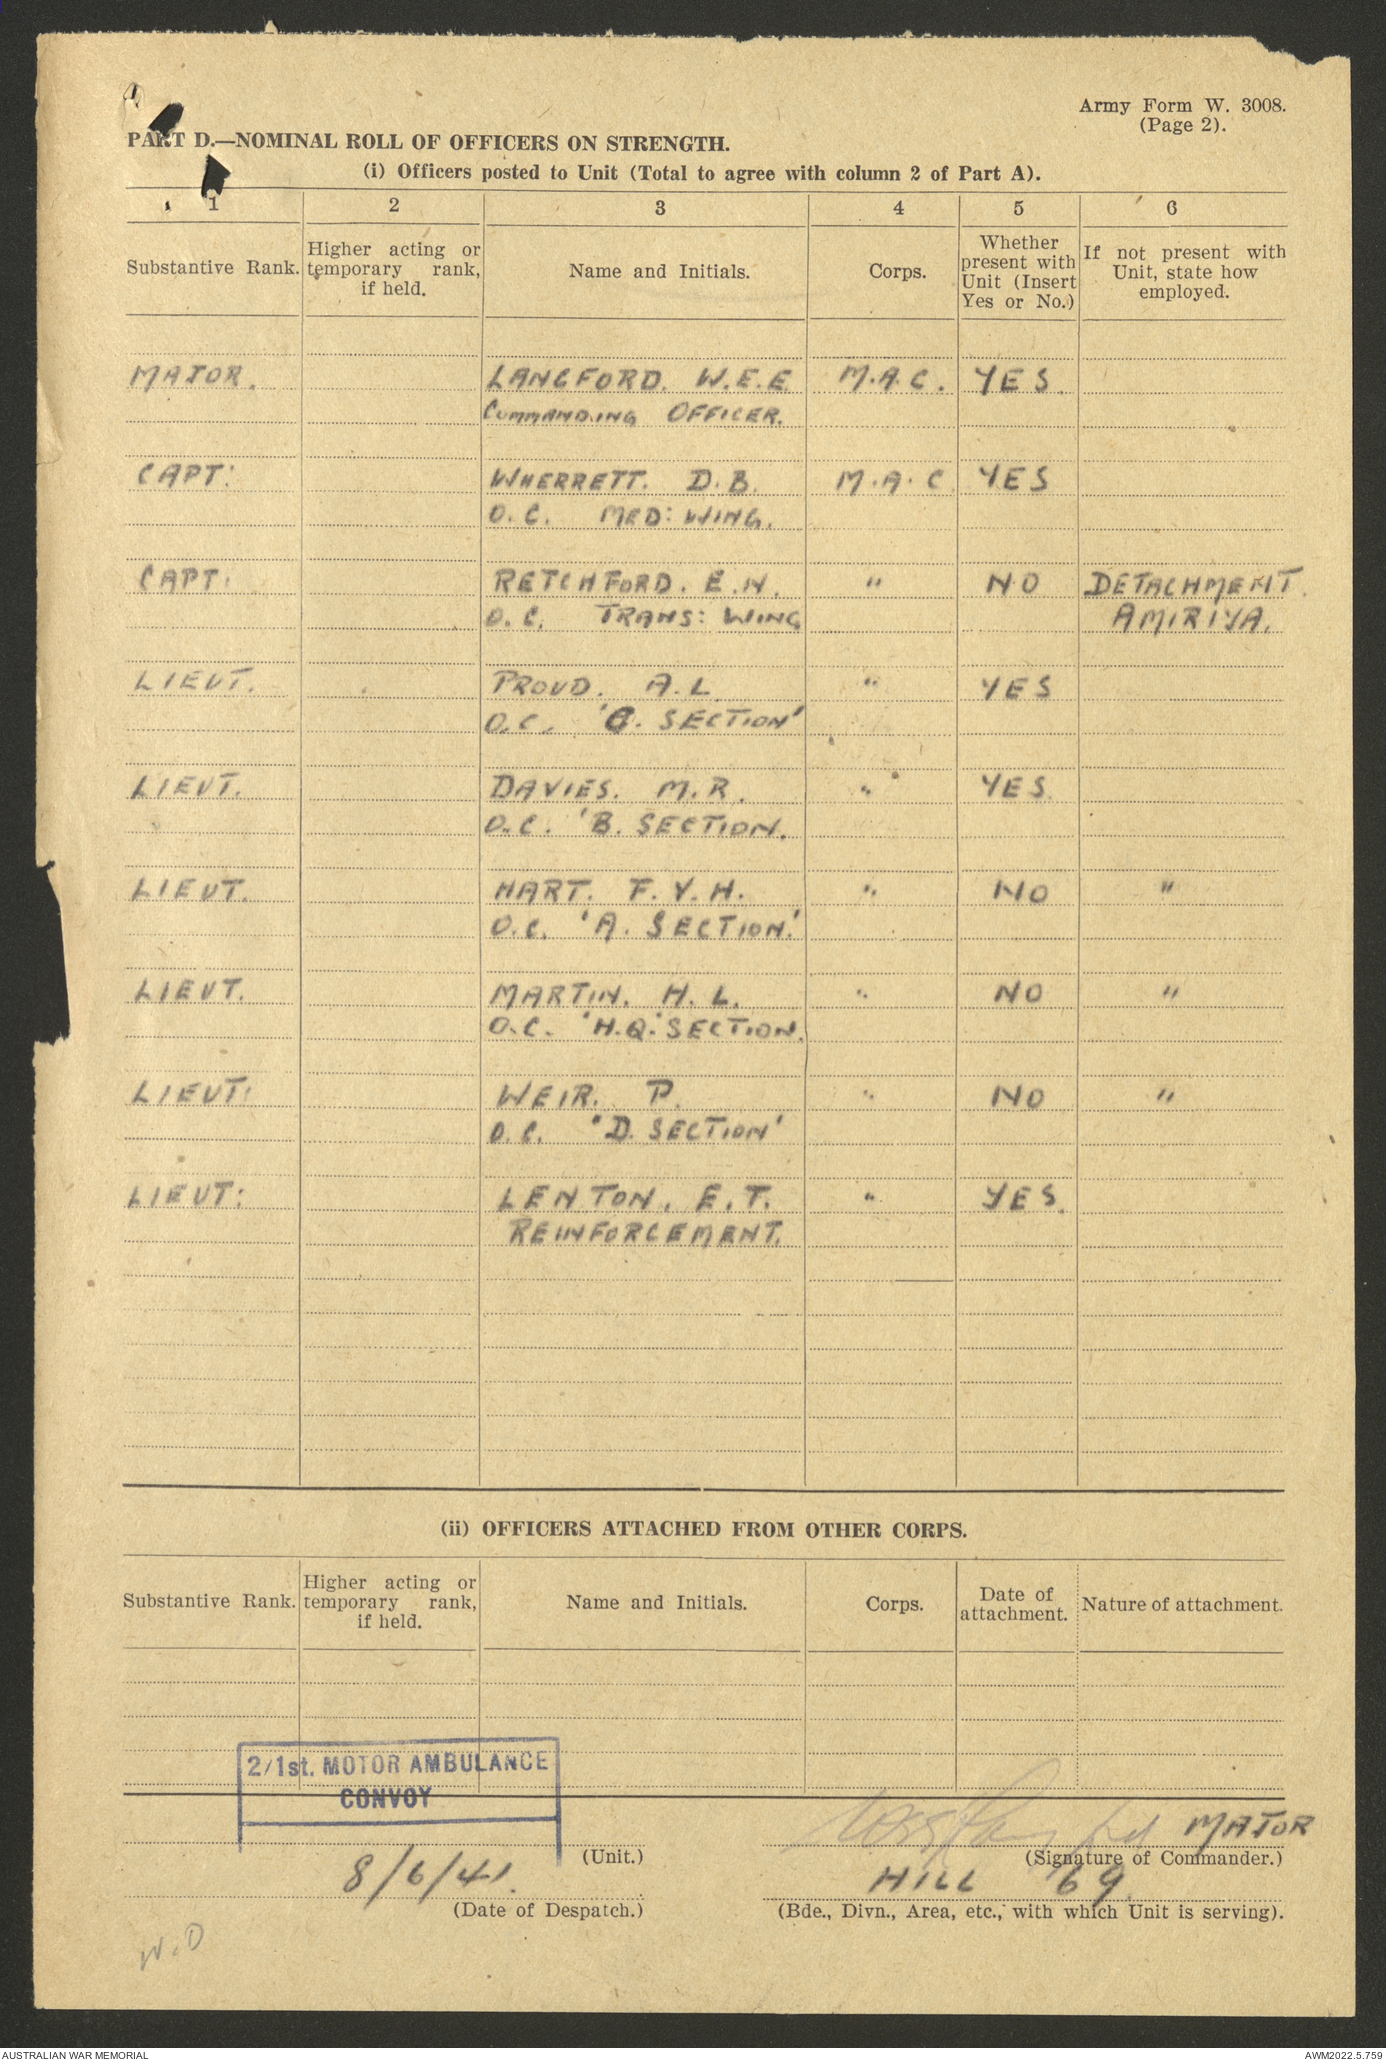 Army Form W. 3008.
(Page 2).
PART D.—NOMINAL ROLL OF OFFICERS ON STRENGTH.
(i) Officers posted to Unit (Total to agree with column 2 of Part A).
1 2 3 4 5 6
Substantive Rank. Higher acting or temporary rank, if held. Name and Initials. Corps. Whether present with Unit (Insert Yes or No.) If not present with Unit, state how employed.
MAJOR. LANGFORD. W.E.E. M.A.C. YES.
COMMANDING OFFICER.
CAPT: WHERRETT. D.B. M.A.C. YES
O.C. MED: WING.
CAPT: RETCHFORD. E.N. " NO DETACHMENT.
O.C. TRANS: WING AMIRIYA.
LIEUT. PROUD. A.L. " YES
O.C. 'C. SECTION'
LIEUT. DAVIES. M.R. " YES.
O.C. 'B. SECTION.
LIEUT. HART. F.V.H. " NO "
O.C. 'A. SECTION.'
LIEUT. MARTIN. H.L. " NO "
O.C. 'H.Q.' SECTION.
LIEUT: WEIR. P. " NO "
O.C. 'D. SECTION'
LIEUT: LENTON. E.T. " YES.
REINFORCEMENT.
(ii) OFFICERS ATTACHED FROM OTHER CORPS.
Substantive Rank. Higher acting or temporary rank, if held. Name and Initials. Corps. Date of attachment. Nature of attachment.
2/1st. MOTOR AMBULANCE
CONVOY
MAJOR
(Unit.) (Signature of Commander.)
8/6/41. HILL 69.
(Date of Despatch.) (Bde., Divn., Area, etc., with which Unit is serving).
W.D
AUSTRALIAN WAR MEMORIAL AWM2022.5.759